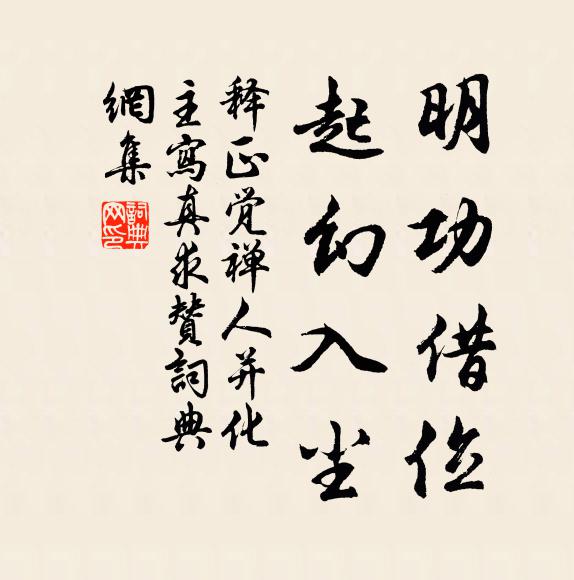 明功借位
起幻入尘
释正觉禅人并化
主寫真求贊詞典
網集
詞典网印